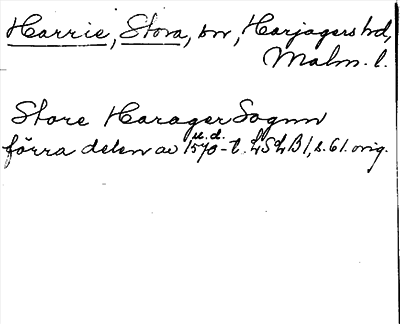 Harrie, Stora, sn, Harjagers hd,
Malm. l.
Store Harager Sognn
u. d.
förra delen av 1570-t. LSLB 1, s. 61. orig.